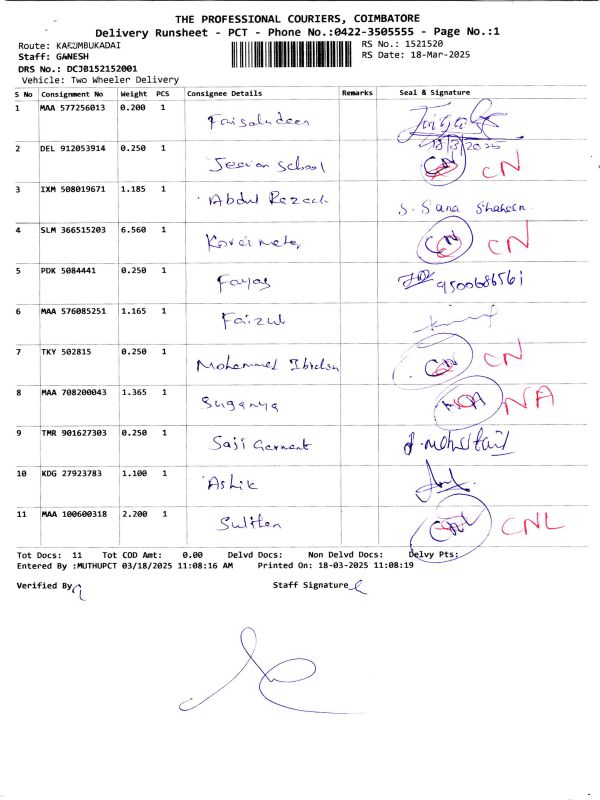 THE PROFESSIONAL COURIERS, COIMBATORE
Delivery Runsheet - PCT - Phone No.:0422-3505555 - Page No.:1
Route: KARUMBUKADAI RS No.: 1521520
Staff: GANESH RS Date: 18-Mar-2025
DRS No.: DCJB152152001
Vehicle: Two Wheeler Delivery
S No Consignment No Weight PCS Consignee Details Remarks Seal & Signature
1 MAA 577256013 0.200 1 Faisaludeen
18/3/2025
2 DEL 912053914 0.250 1 School CN CN
3 IXM 508019671 1.185 1 Abdul Razack S. Sana Shaheen
4 SLM 366515203 6.560 1 CN CN
5 PDK 5084441 0.250 1 Fayas 9500686561
6 MAA 576085251 1.165 1 Faizul
7 TKY 502815 0.250 1 Mohammed CN CN
8 MAA 708200043 1.365 1 Suganya NA
9 TMR 901627303 0.250 1 Saji Garment
10 KDG 27923783 1.100 1 Ashik
11 MAA 100600318 2.200 1 CNL CNL
Tot Docs: 11 Tot COD Amt: 0.00 Delvd Docs: Non Delvd Docs: Delvy Pts:
Entered By :MUTHUPCT 03/18/2025 11:08:16 AM Printed On: 18-03-2025 11:08:19
Verified By Staff Signature